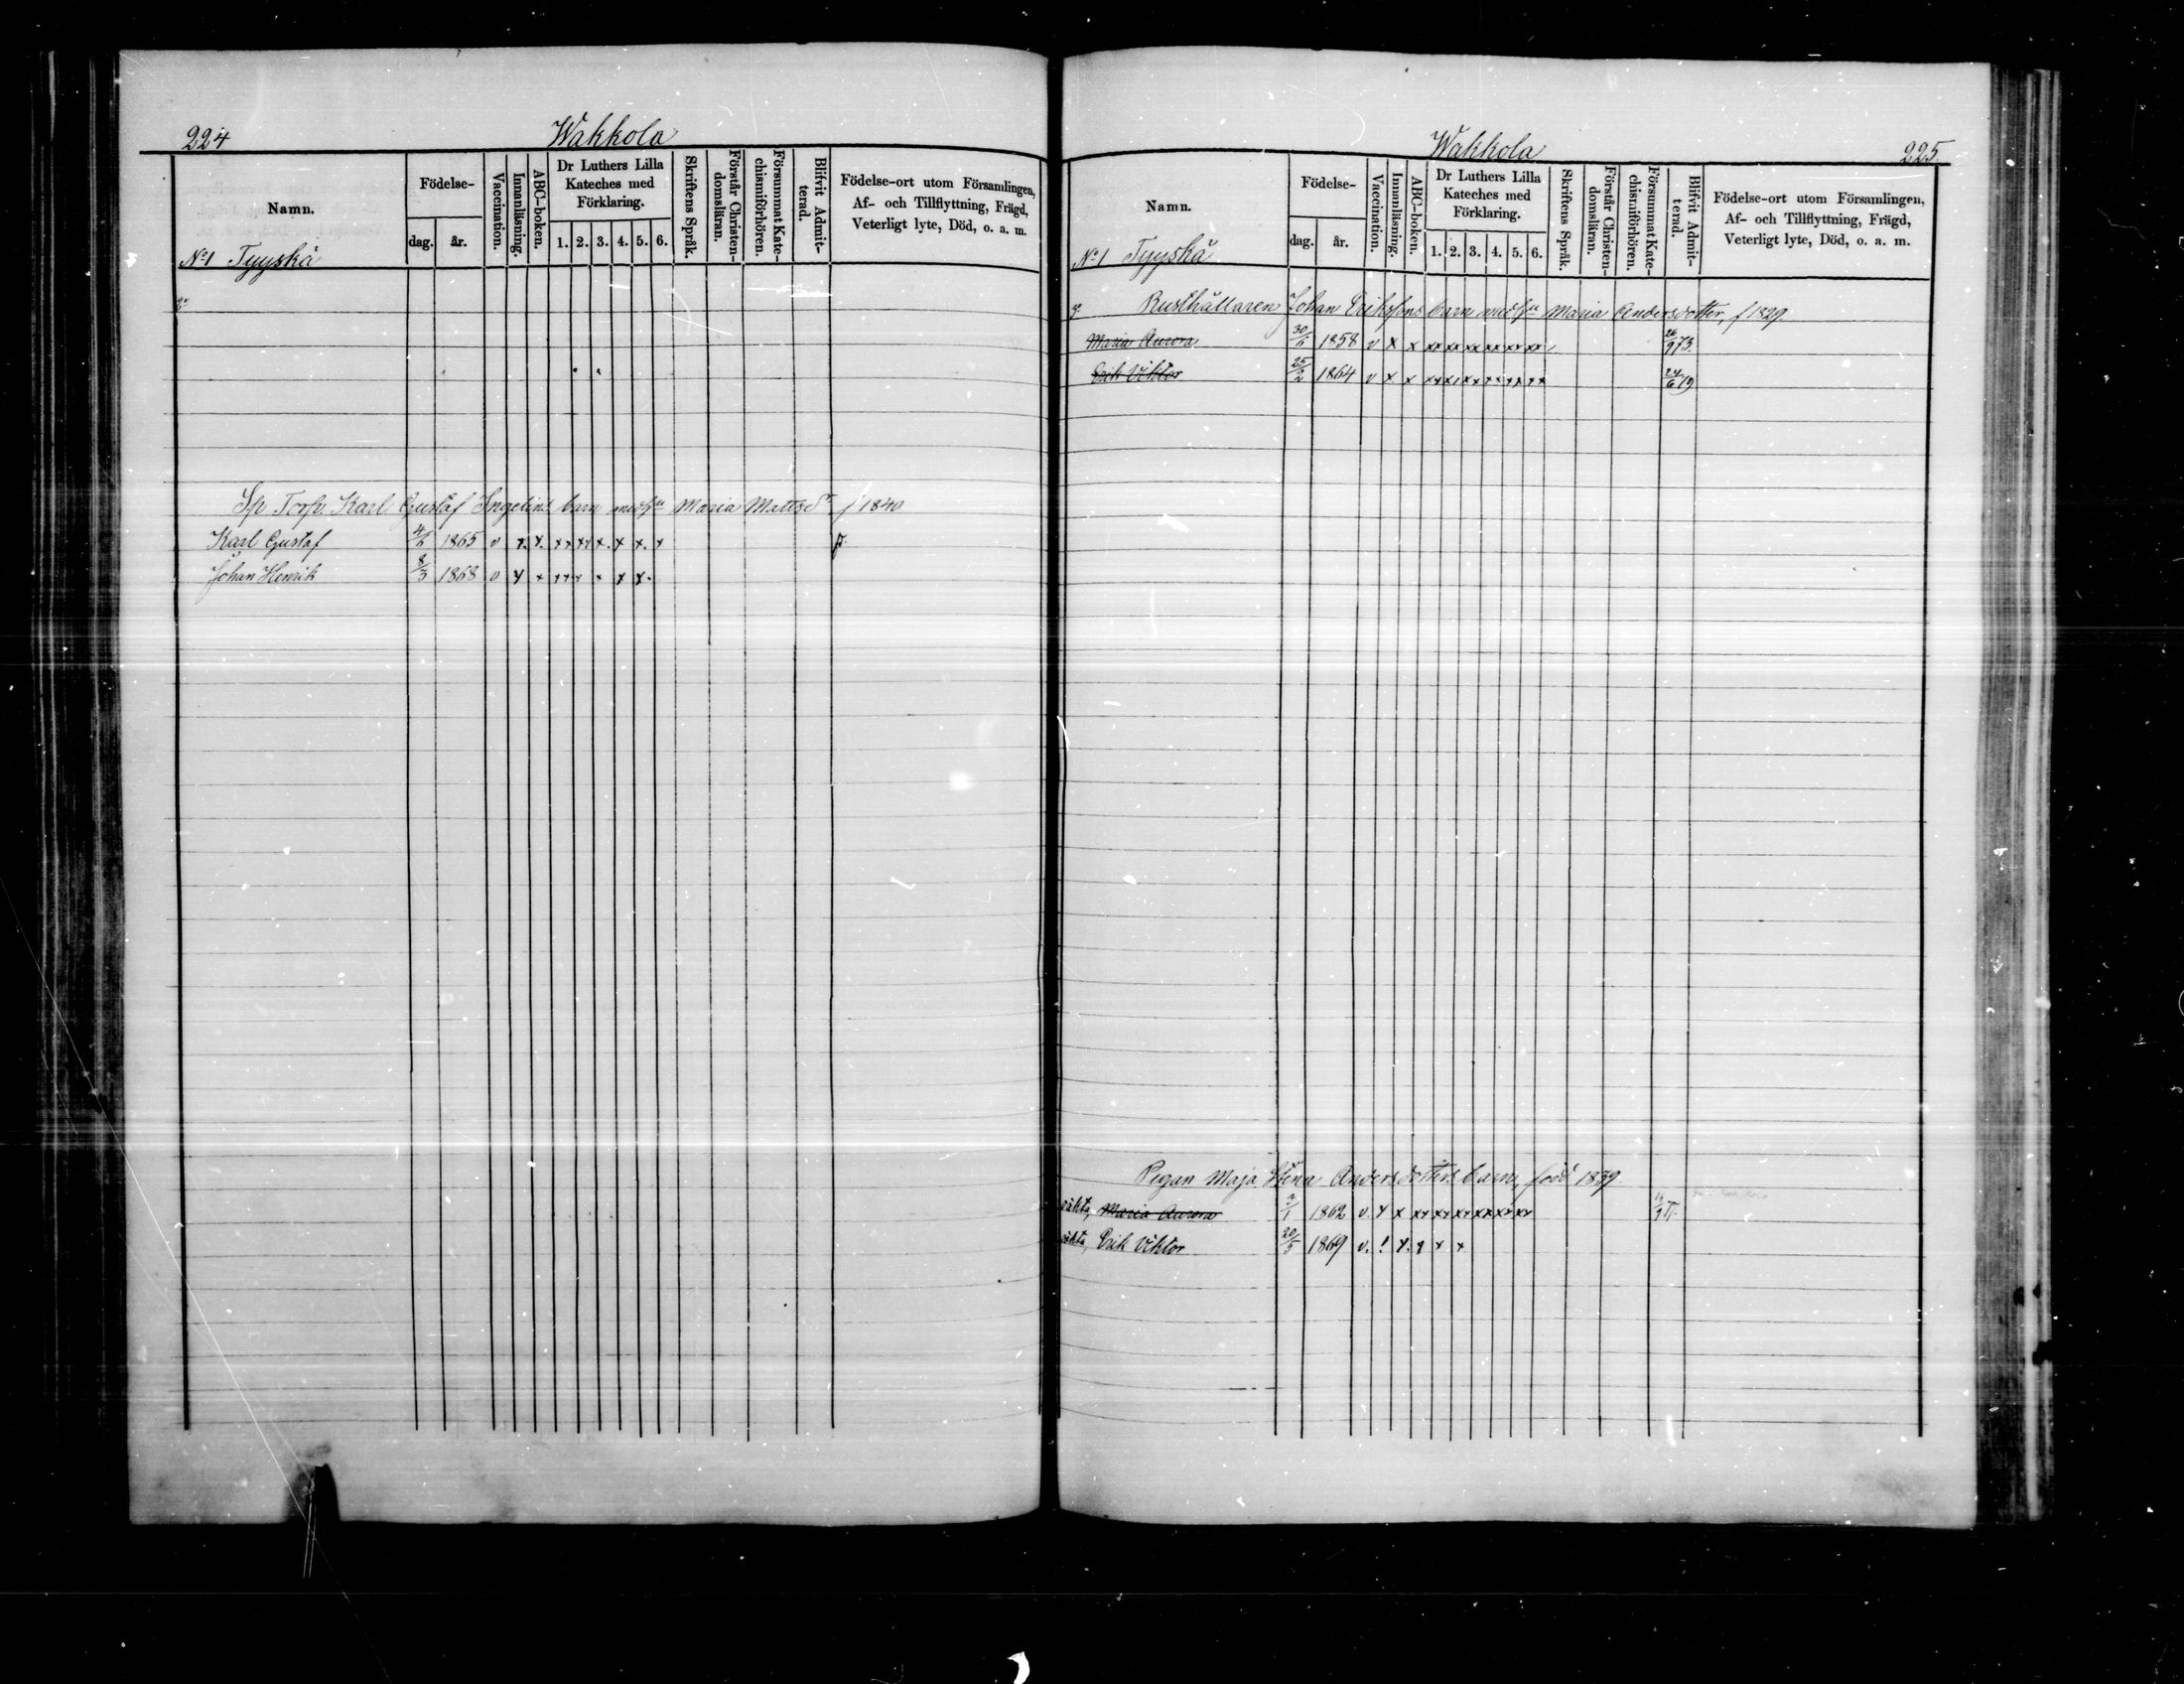 224
Wakkola
Namn.
Födelse-
dag. år.
Vaccination.
Innanläsning.
ABC-boken.
Dr Luthers Lilla
Kateches med
Förklaring.
1. 2. 3. 4. 5. 6.
Skriftens Språk.
Förstår Christen-
domsläran.
Försummat Kate-
chismiförhören.
Blifvit Admit-
terad.
Födelse-ort utom Församlingen,
Af- och Tillflyttning, Frägd,
Veterligt lyte, Död, o. a. m.
No 1 Tyyskä
Sp. Torp. Karl Gustaf Ingelins barn med hu Maria Mattsdr f 1840
Karl Gustaf 4/6 1865 v
Johan Henrik 8/3 1868 v
Wakkola
225.
Namn.
Födelse-
dag. år.
Vaccination.
Innanläsning.
ABC-boken.
Dr Luthers Lilla
Kateches med
Förklaring.
1. 2. 3. 4. 5. 6.
Skriftens Språk.
Förstår Christen-
domsläran.
Försummat Kate-
chismiförhören.
Blifvit Admit-
terad.
Födelse-ort utom Församlingen,
Af- och Tillflyttning, Frägd,
Veterligt lyte, Död, o. a. m.
No 1 Tyyskä
Rusthållaren Johan Erikssons barn med hu Maria Andersdotter, f 1829.
Maria Aurora 1858 v x x xx xx xx xx xx xx 73.
Erik Viktor 25/2 1864 v x x xx xx xx xx xx xx 24/6 79
Pigan Maja Stina Andersdotters barn, född 1839.
oäkta, Maria Aurora 1862 v. x x xx xx xx xx xx xx
oäkta, Erik Viktor 20/5 1869 v.